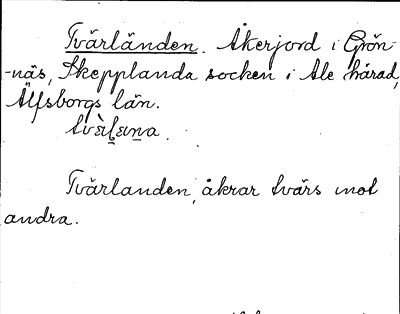 Tvärländen. Åkerjord i Grön-
-näs, Skepplanda socken i Ale härad,
Älfsborgs län.
Tvärlanden, åkrar tvärs mot
andra.